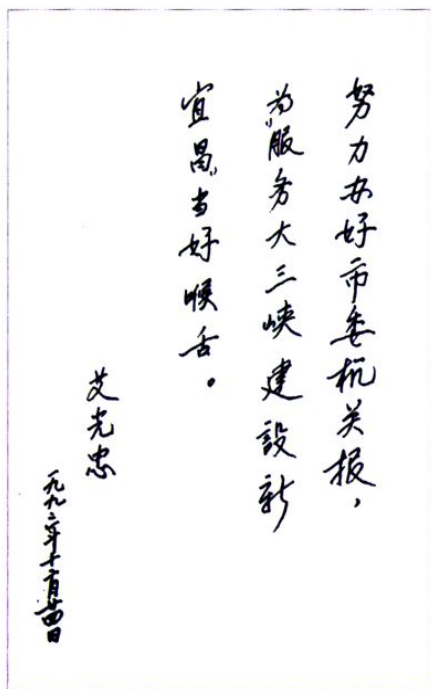 努力办好市委机关报，
为“服务大三峡建設新
宜昌”当好喉舌。
艾光忠
一九九二年十一月廿四日